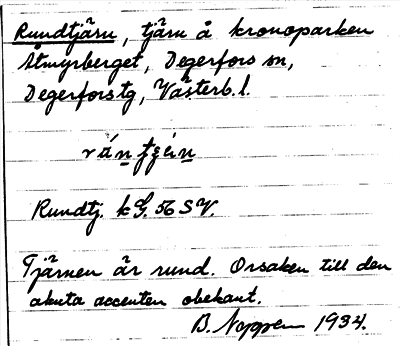 Rundtjärn, tjärn å kronoparken
Åtmyrberget, Degerfors sn,
Degerforstg, Västerb. l.
Rundtj. kG. 56 SV.
Tjärnen är rund. Orsaken till den
akuta accenten obekant.
B. Noppen 1934.